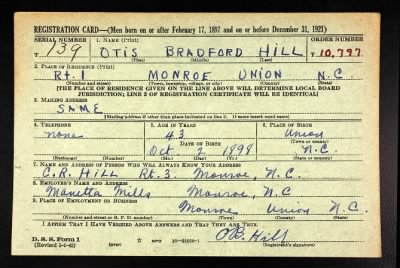 REGISTRATION CARD—(Men born on or after February 17, 1897 and on or before December 31, 1921)
SERIAL NUMBER 1. NAME (Print) ORDER NUMBER
T 139 OTIS BRADFORD HILL T 10,797
(First) (Middle) (Last)
2. PLACE OF RESIDENCE (Print)
Rt. 1 MONROE UNION N.C.
(Number and street) (Town, township, village, or city) (County) (State)
[THE PLACE OF RESIDENCE GIVEN ON THE LINE ABOVE WILL DETERMINE LOCAL BOARD
JURISDICTION; LINE 2 OF REGISTRATION CERTIFICATE WILL BE IDENTICAL]
3. MAILING ADDRESS
SAME
[Mailing address if other than place indicated on line 2. If same insert word same]
4. TELEPHONE 5. AGE IN YEARS 6. PLACE OF BIRTH
none 43 Union
DATE OF BIRTH (Town or county)
Oct 1898 N.C.
(Exchange) (Number) (Mo.) (Day) (Yr.) (State or country)
7. NAME AND ADDRESS OF PERSON WHO WILL ALWAYS KNOW YOUR ADDRESS
C.R. HILL Rt. 3. Monroe, N.C.
8. EMPLOYER'S NAME AND ADDRESS
Manetta Mills Monroe, N.C
9. PLACE OF EMPLOYMENT OR BUSINESS
Monroe Union N.C.
(Number and street or R. F. D. number) (Town) (County) (State)
I AFFIRM THAT I HAVE VERIFIED ABOVE ANSWERS AND THAT THEY ARE TRUE.
D. S. S. Form 1
(Revised) O.B. Hill
(Registrant's signature)